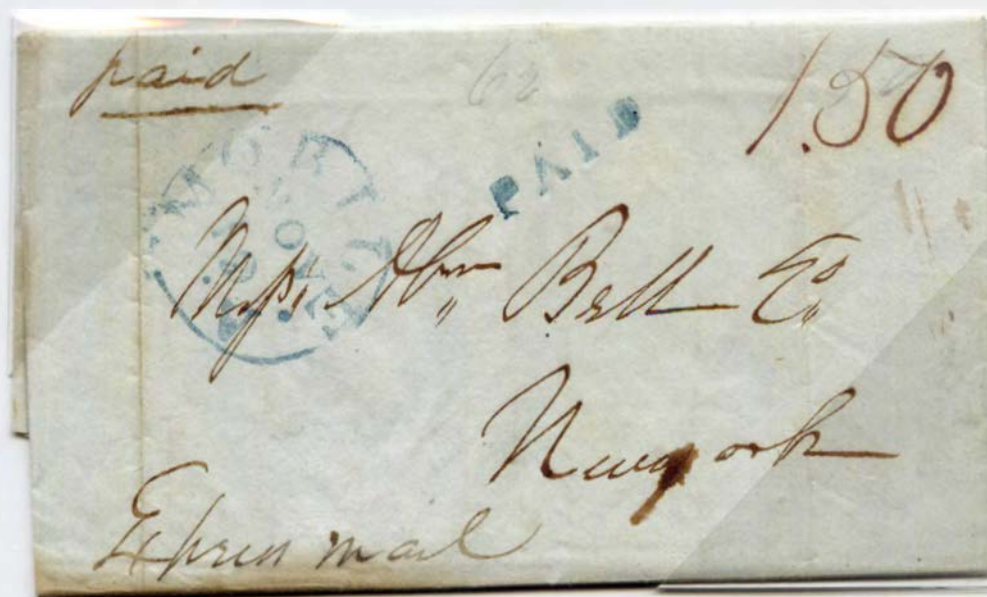 paid
62
1.50
PAID
Messrs Abm Bell Co
Newyork
Express mail